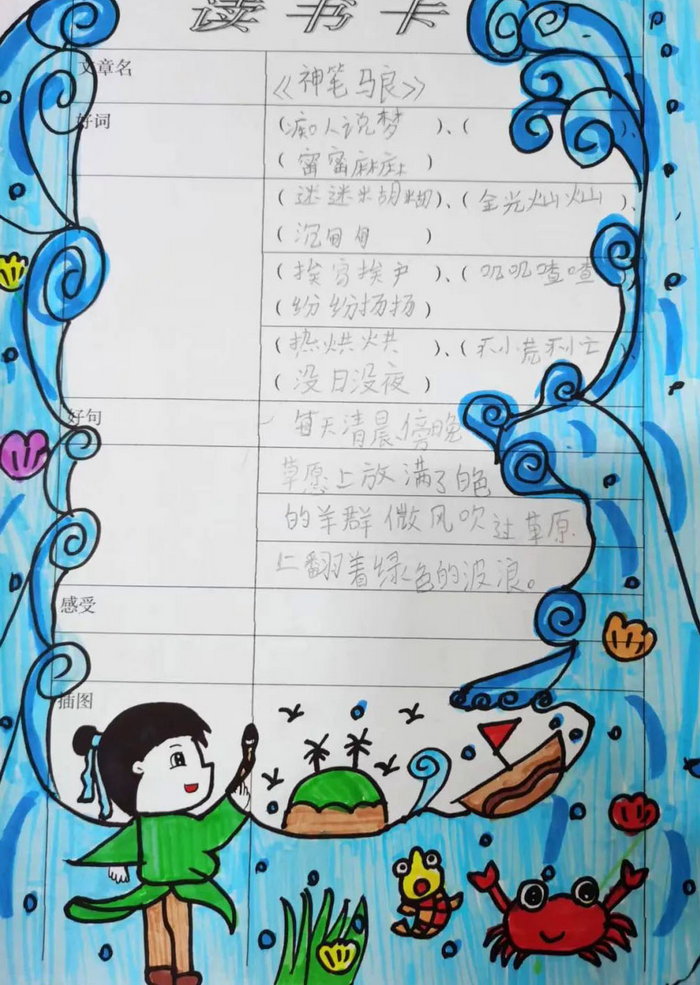 读书卡
文章名 《神笔马良》
好词 (痴人说梦 )、( )、
(密密麻麻 )
(迷迷米胡糊)、(金光灿灿 )、
(沉甸甸 )
(挨家挨户 )、(叽叽喳喳 )、
(纷纷扬扬 )
(热烘烘 )、( )、
(没日没夜 )
好句 每天清晨傍晚
草原上放满了白色
的羊群微风吹过草原
上翻着绿色的波浪。
感受
插图